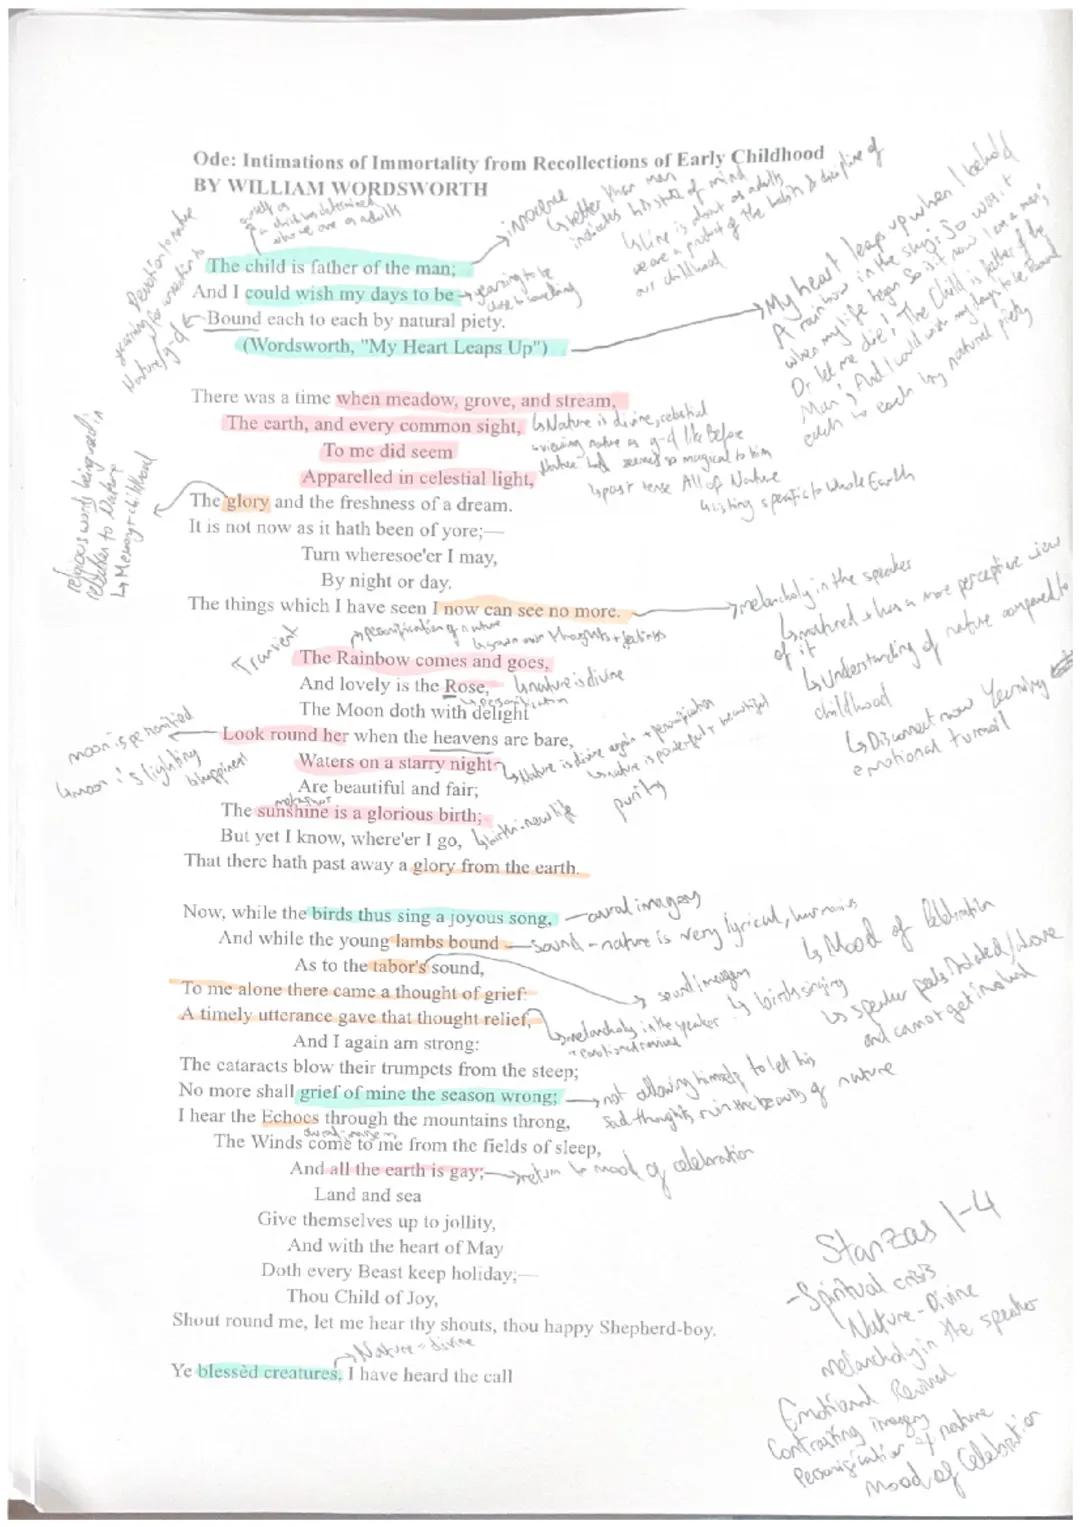 Ode: Intimations of Immortality from Recollections of Early Childhood
BY WILLIAM WORDSWORTH
a child has determined
who we are as adults
innocence
better than man
indicates his state of mind
Line is about as adults
we are a product of the habits & discipline of
our childhood
Devotion to nature
yearning for connection to
Nature/g-d
The child is father of the man;
And I could wish my days to be
yearning to be
Bound each to each by natural piety.
(Wordsworth, "My Heart Leaps Up")
My heart leaps up when I behold
A rainbow in the sky: So was it
when my life began So is it now I am a man;
Or let me die! The Child is father of the
Man; And I could wish my days to be Bound
each to each by natural piety
There was a time when meadow, grove, and stream,
The earth, and every common sight,
To me did seem
Apparelled in celestial light,
Nature is divine, celestial
viewing nature as g-d like Before
Nature had seemed so magical to him
past tense All of Nature
listing specific to Whole Earth
religious words being used in
relation to Nature
Memory + childhood
The glory and the freshness of a dream.
It is not now as it hath been of yore;—
Turn wheresoe'er I may,
By night or day.
The things which I have seen I now can see no more.
melancholy in the speaker
matured + has a more perceptive view
of it
Understanding of nature compared to
childhood
Disconnect now Yearning
emotional turmoil
Transient
personification of nature
own thoughts + feelings
The Rainbow comes and goes,
And lovely is the Rose,
nature is divine
personification
The Moon doth with delight
Look round her when the heavens are bare,
moon is personified
moon is lighting
Waters on a starry night
Nature is divine again + personification
nature is powerful + beautiful
purity
Are beautiful and fair;
metaphor
The sunshine is a glorious birth;
But yet I know, where'er I go,
birth-new life
That there hath past away a glory from the earth.
Now, while the birds thus sing a joyous song,
aural imagery
And while the young lambs bound
sound - nature is very lyrical, harmonious
Mood of celebration
As to the tabor's sound,
sound imagery
birds singing
To me alone there came a thought of grief:
A timely utterance gave that thought relief,
melancholy in the speaker
emotional revival
speaker feels isolated/alone
and cannot get involved
And I again am strong:
The cataracts blow their trumpets from the steep;
No more shall grief of mine the season wrong;
not allowing himself to let his
sad thoughts ruin the beauty of nature
I hear the Echoes through the mountains throng,
aural imagery
The Winds come to me from the fields of sleep,
And all the earth is gay;
return to mood of celebration
Land and sea
Give themselves up to jollity,
And with the heart of May
Doth every Beast keep holiday;—
Thou Child of Joy,
Shout round me, let me hear thy shouts, thou happy Shepherd-boy.
Nature = divine
Ye blessèd creatures, I have heard the call
Stanzas 1-4
-Spiritual crisis
Nature - Divine
melancholy in the speaker
Emotional Revival
Contrasting imagery
Personification of nature
mood of Celebration